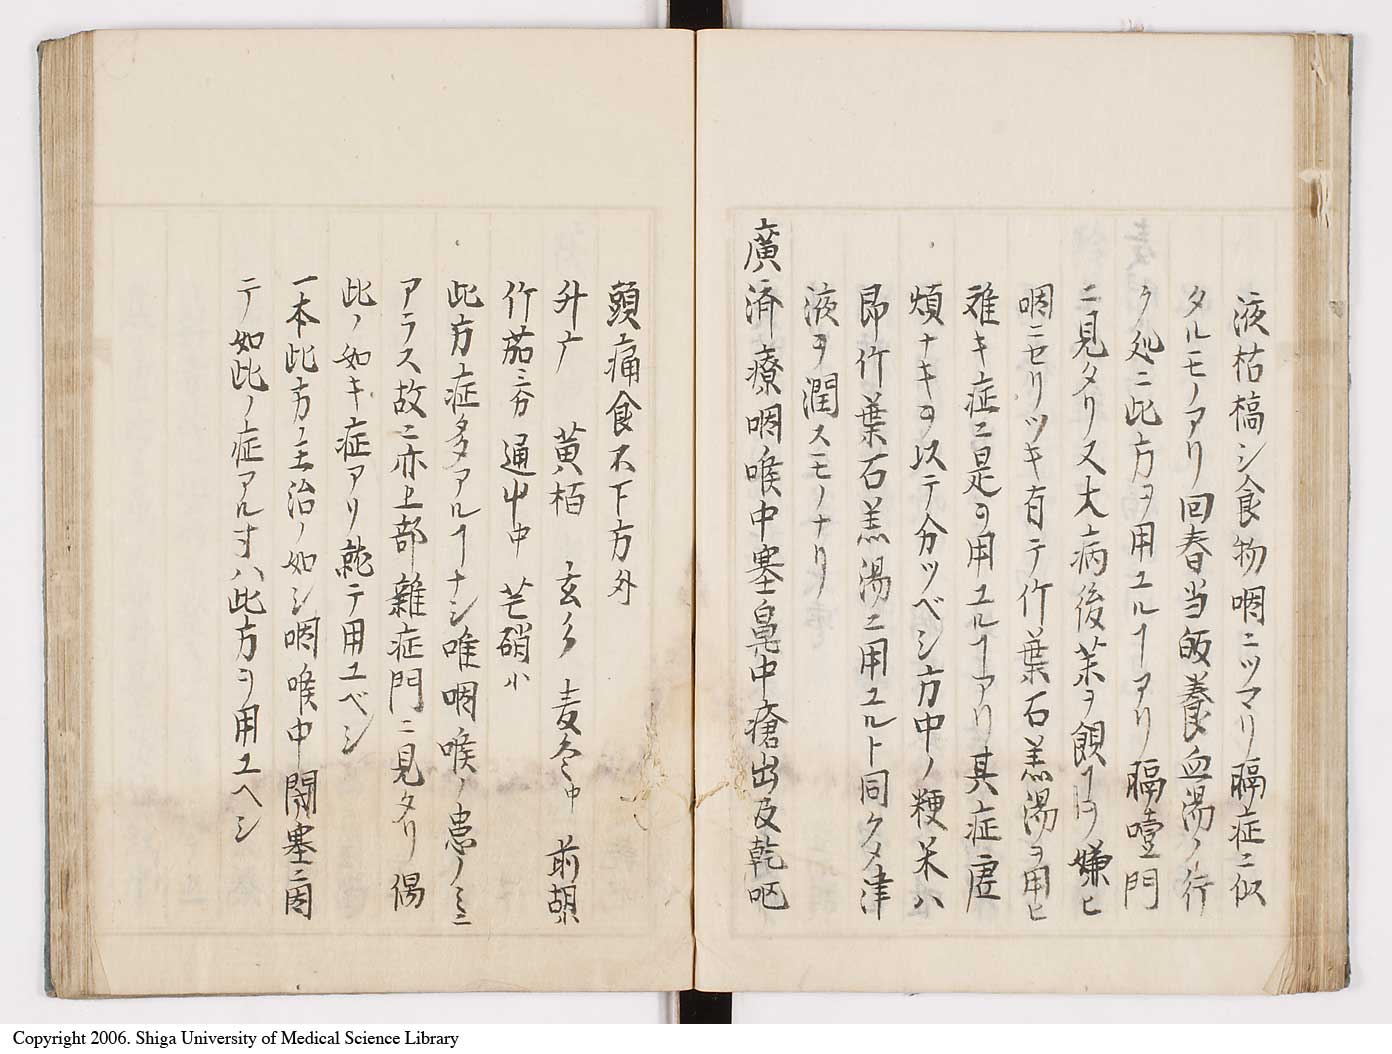 液枯槁シ食物咽ニツマリ膈症ニ似
タルモノアリ回春当皈養血湯ノ行
ク処ニ此方ヲ用ユルヿアリ膈噎門
ニ見タリ又大病後茶ヲ飲ヿ嫌ヒ
咽ニセリツキ有テ竹葉石羔湯ヲ用ヒ
难キ症ニ是ヲ用ユルヿアリ其症虚
煩ナキヲ以テ分ツベシ方中ノ粳米ハ
即竹葉石羔湯ニ用ユルト同クメ津
液ヲ潤スモノナリ
廣済療咽喉中塞鼻中瘡出及乾呕
頭痛食不下方外
升广 黄栢 玄参 麦冬中 前胡小
竹茹三分 通中中 芒硝小
此方症多アルヿナシ唯咽喉ノ患ノミニ
アラス故ニ亦上部雜症門ニ見タリ偶
此ノ如キ症アリ就テ用ユベシ
一本此方ノ主治ノ如シ咽喉中閉塞ニ因
テ如此ノ症アル寸ハ此方ヲ用ユヘシ
Copyright 2006. Shiga University of Medical Science Library